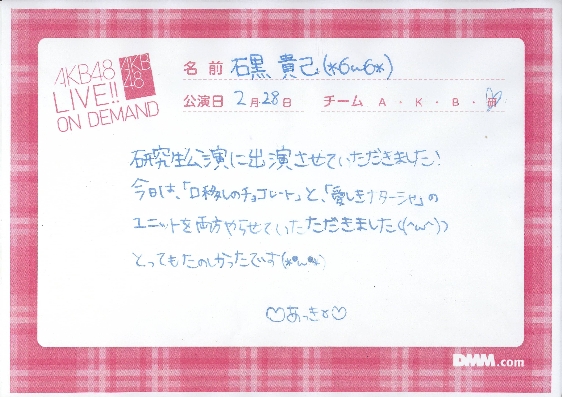 AKB48
LIVE!!
ON DEMAND
AKB
48
名前 石黒 貴己(*6ω6*)
公演日 2月28日 チーム A・K・B・研
研究生公演に出演させていただきました!
今日は、「口移しのチョコレート」と、「愛しきナターシャ」の
ユニットを両方やらせていたただきました(^ω^)
とってもたのしかったです(*•ω•*)
♡あっきと♡
DMM.com